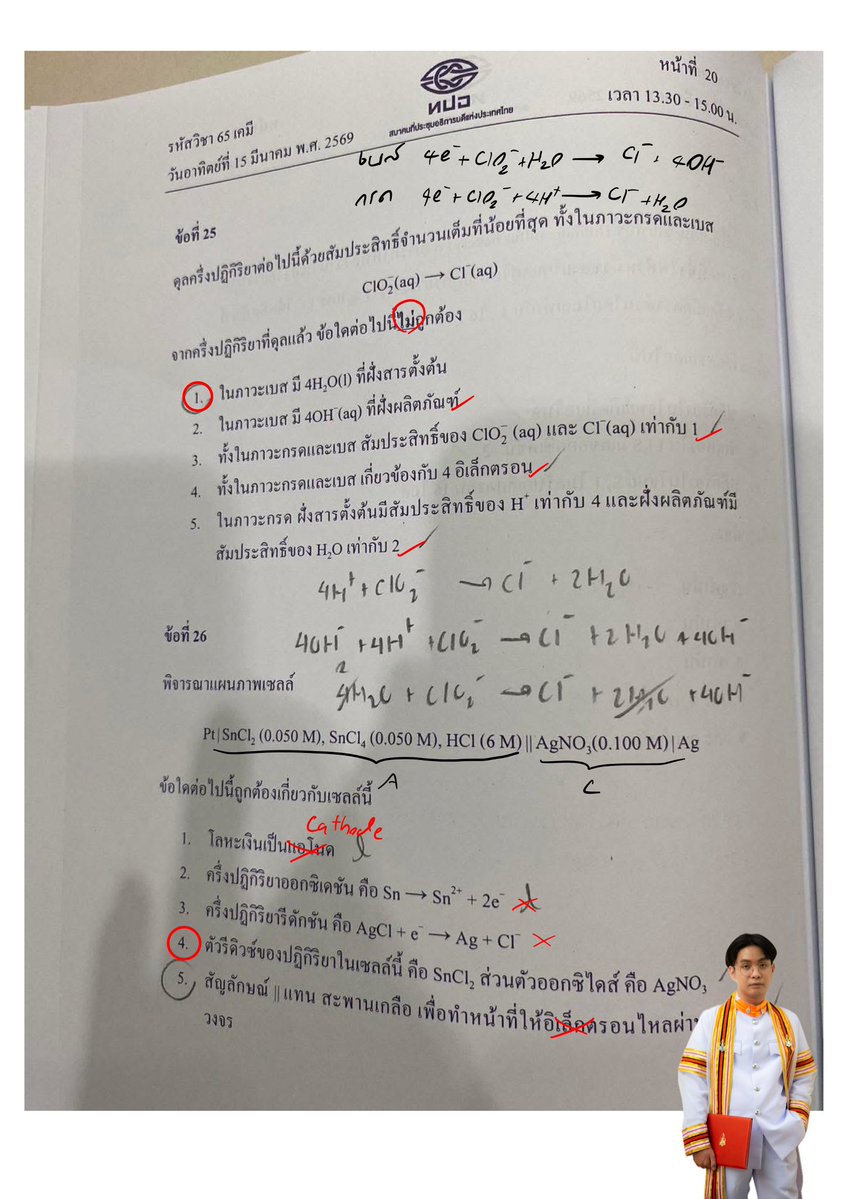 หน้าที่ 20
ทปอ
สมาคมที่ประชุมอธิการบดีแห่งประเทศไทย
เวลา 13.30 - 15.00 น.
รหัสวิชา 65 เคมี
วันอาทิตย์ที่ 15 มีนาคม พ.ศ. 2569
เบส 4e⁻ + ClO₂⁻ + H₂O → Cl⁻ + 4OH⁻
กรด 4e⁻ + ClO₂⁻ + 4H⁺ → Cl⁻ + H₂O
ข้อที่ 25
ดุลครึ่งปฏิกิริยาต่อไปนี้ด้วยสัมประสิทธิ์จำนวนเต็มที่น้อยที่สุด ทั้งในภาวะกรดและเบส
ClO₂⁻(aq) → Cl⁻(aq)
จากครึ่งปฏิกิริยาที่ดุลแล้ว ข้อใดต่อไปนี้ไม่ถูกต้อง
1. ในภาวะเบส มี 4H₂O(l) ที่ฝั่งสารตั้งต้น
2. ในภาวะเบส มี 4OH⁻(aq) ที่ฝั่งผลิตภัณฑ์
3. ทั้งในภาวะกรดและเบส สัมประสิทธิ์ของ ClO₂⁻ (aq) และ Cl⁻(aq) เท่ากับ 1
4. ทั้งในภาวะกรดและเบส เกี่ยวข้องกับ 4 อิเล็กตรอน
5. ในภาวะกรด ฝั่งสารตั้งต้นมีสัมประสิทธิ์ของ H⁺ เท่ากับ 4 และฝั่งผลิตภัณฑ์มี
สัมประสิทธิ์ของ H₂O เท่ากับ 2
4H⁺ + ClO₂⁻ → Cl⁻ + 2H₂O
ข้อที่ 26
4OH⁻ + 4H⁺ + ClO₂⁻ → Cl⁻ + 2H₂O + 4OH⁻
2
พิจารณาแผนภาพเซลล์
4H₂O + ClO₂⁻ → Cl⁻ + 2H₂O + 4OH⁻
Pt|SnCl₂ (0.050 M), SnCl₄ (0.050 M), HCl (6 M) || AgNO₃(0.100 M)|Ag
A C
ข้อใดต่อไปนี้ถูกต้องเกี่ยวกับเซลล์นี้
Cathode
1. โลหะเงินเป็นแอโนด
2. ครึ่งปฏิกิริยาออกซิเดชัน คือ Sn → Sn²⁺ + 2e⁻
3. ครึ่งปฏิกิริยารีดักชัน คือ AgCl + e⁻ → Ag + Cl⁻
4. ตัวรีดิวซ์ของปฏิกิริยาในเซลล์นี้ คือ SnCl₂ ส่วนตัวออกซิไดส์ คือ AgNO₃
5. สัญลักษณ์ || แทน สะพานเกลือ เพื่อทำหน้าที่ให้อิเล็กตรอนไหลผ่าน
วงจร